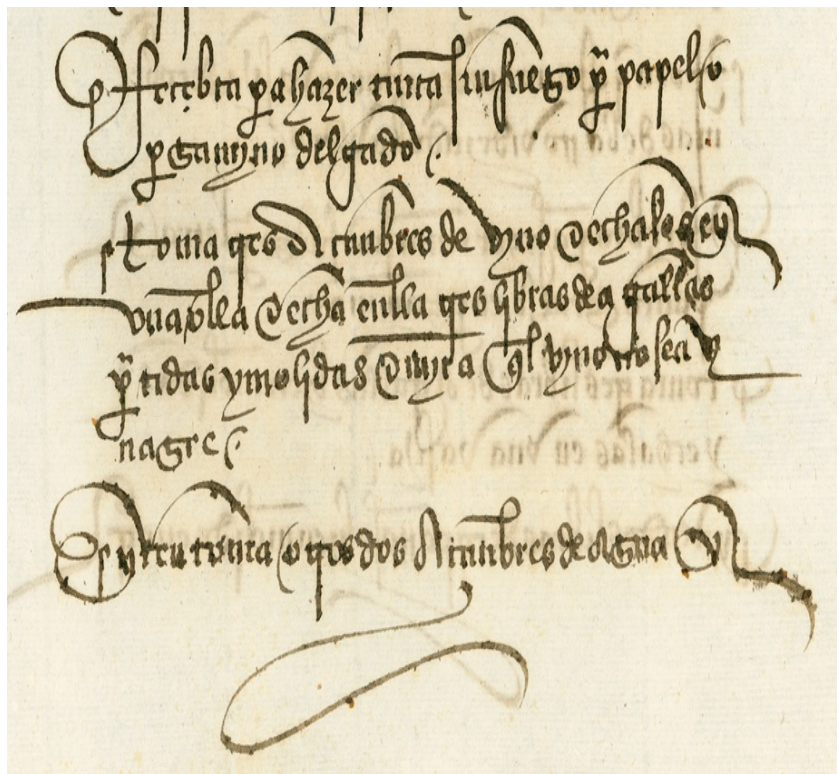 Recebta pa hazer tinta sin fuego pa papel o
pergamyno delgado
toma qtro Açunbres de vyno e echalos en
vna olla e echa enlla qtro libras de agallas
partidas y molidas e myra ql vyno no sea vy
nagre
yten toma otros dos Açunbres de agua